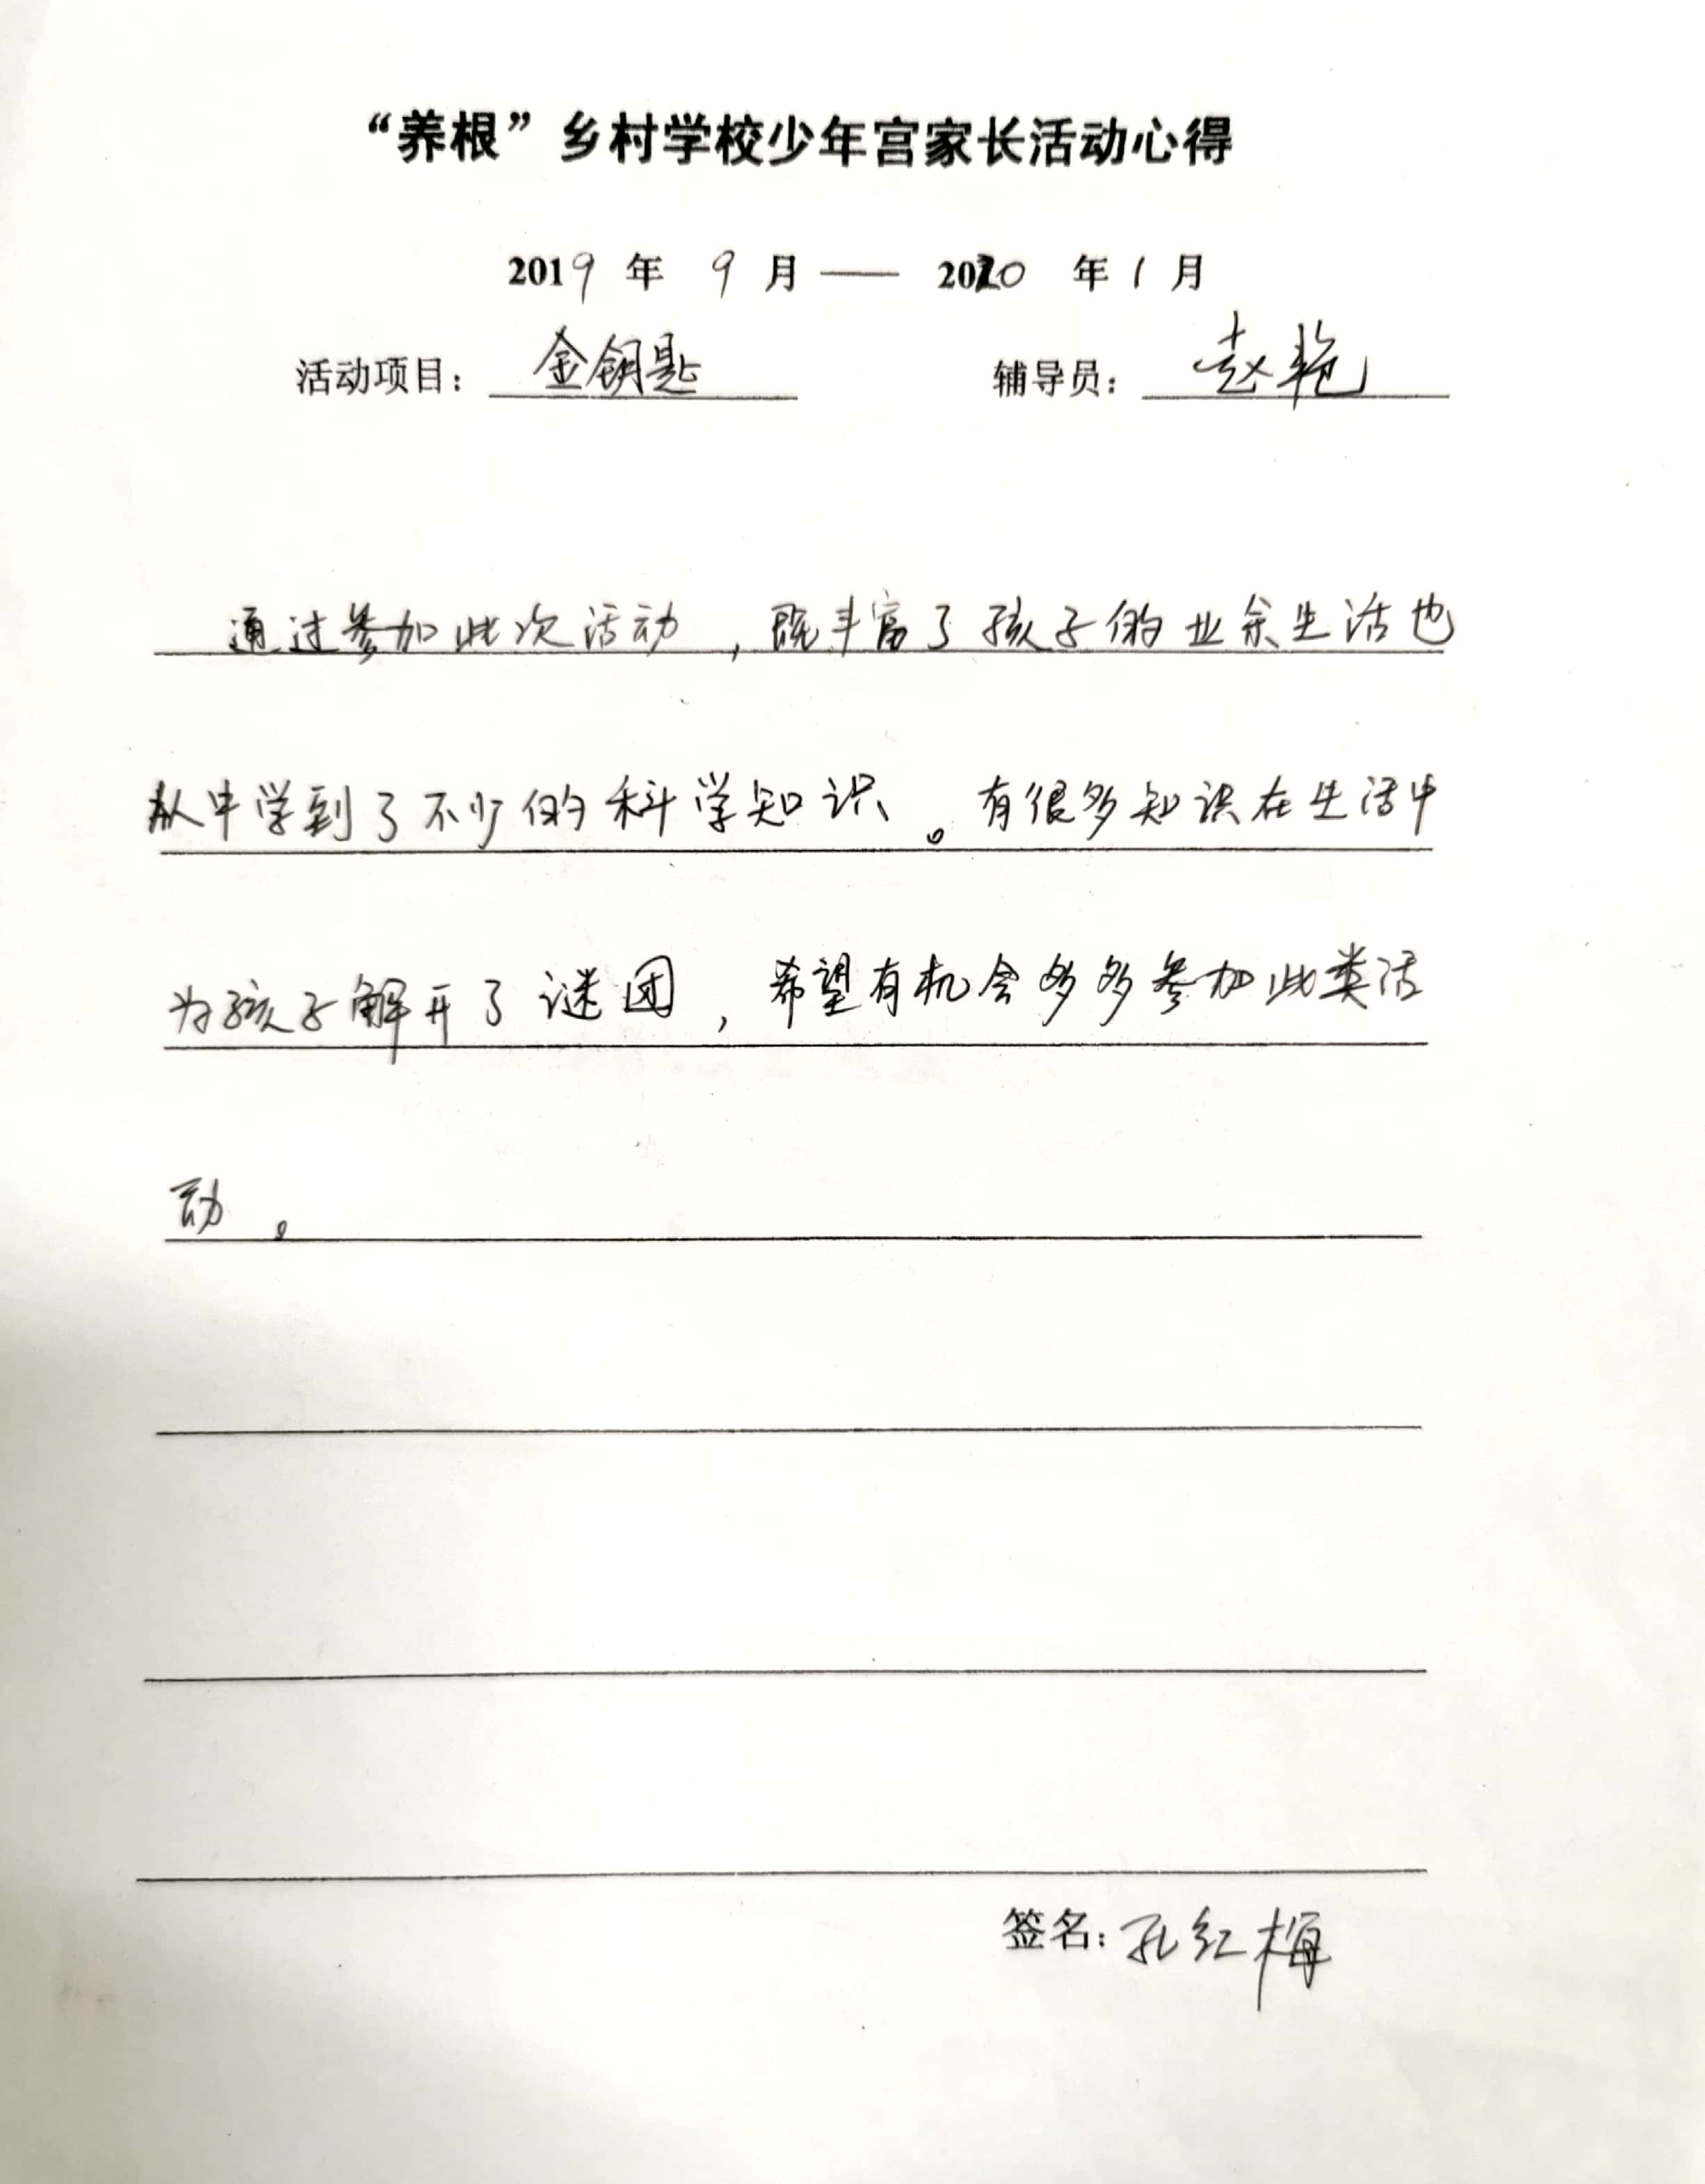 “养根”乡村学校少年宫家长活动心得
2019 年 9 月 —— 2020 年 1 月
活动项目： 金钥匙 辅导员： 赵艳
通过参加此次活动，既丰富了孩子的业余生活也
从中学到了不少的科学知识。有很多知识在生活中
为孩子解开了谜团，希望有机会多多参加此类活
动。
签名：孔红梅